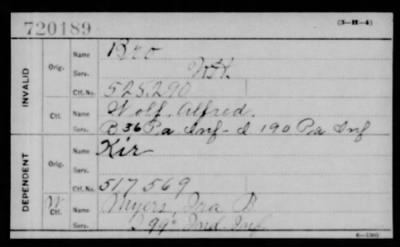 720189 (3-H-4)
INVALID
Orig. Name Bro
Serv.
Ctf. No. 525,290
Ctf. Name Wolf, Alfred.
Serv. B 36 Pa Inf - I 190 Pa Inf
DEPENDENT
Orig. Name Kir
Serv.
Ctf. No. 517,569
W Ctf. Name Myers, Ira B
Serv. 99" Ind. Inf.